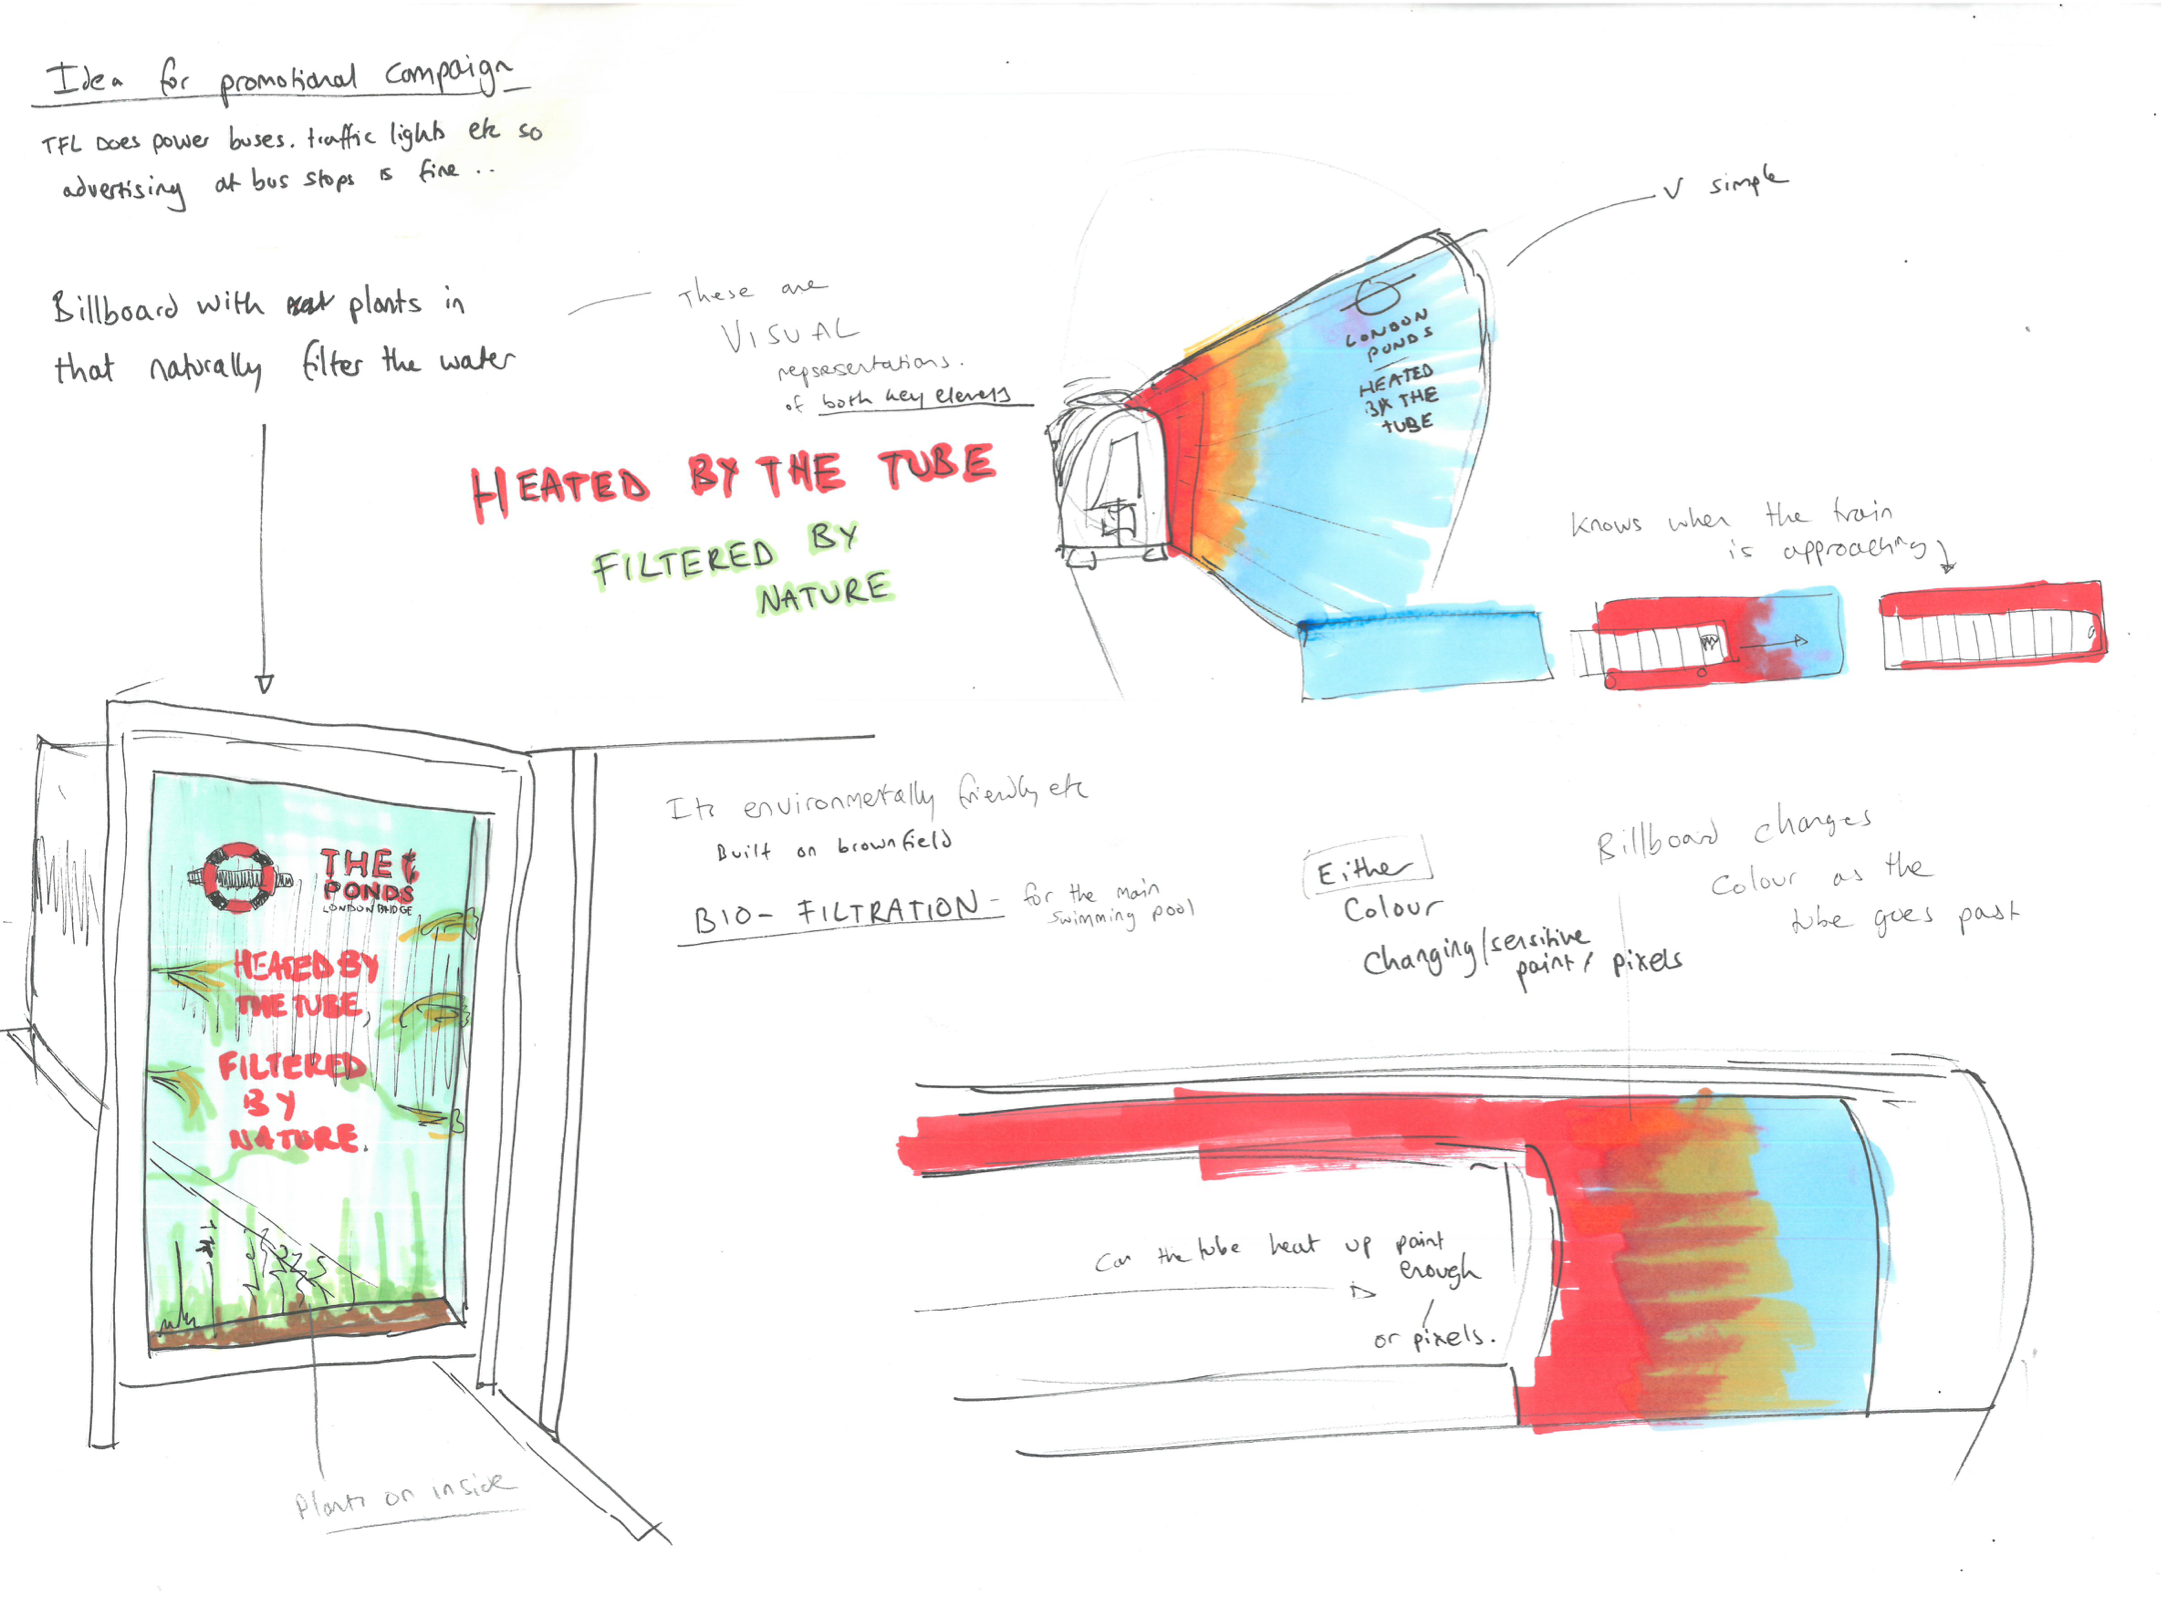 Idea for promotional campaign
TFL Does power buses. traffic lights etc so
advertising at bus stops is fine ..
Billboard with plants in
that naturally filter the water
These are
VISUAL
representations.
of both key
HEATED BY THE TUBE
FILTERED BY
NATURE
V simple
LONDON
PONDS
HEATED
BY THE
TUBE
Knows when the train
is approaching
THE
PONDS
LONDON BRIDGE
HEATED BY
THE TUBE,
FILTERED
BY
NATURE.
Plants on inside
Its environmetally friendly etc
Built on brownfield
BIO-FILTRATION - for the main
swimming pool
Either
Colour
Changing/sensitive
paint / pixels
Billboard changes
Colour as the
tube goes past
Can the tube heat up paint
enough
or pixels.